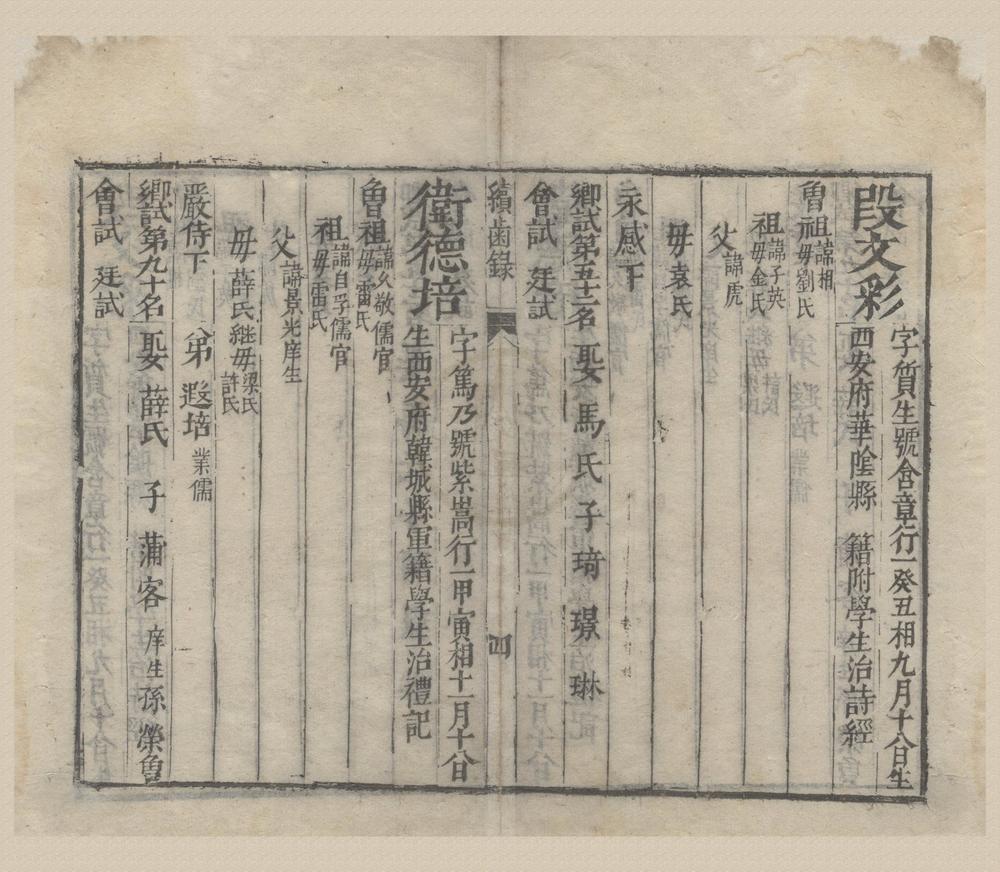 段文彩
字質生號含章行一癸丑相九月十八日生
西安府華陰縣　籍附學生治詩經
曾祖諱相
祖母劉氏
祖諱子英
母金氏
父諱虎
母袁氏
永感下
鄉試第五十二名　娶馬氏　子琦　璟　琳
會試　廷試
續齒錄
四
衛德培
字篤乃號紫嵩行一甲寅相十一月十八日
生西安府韓城縣軍籍學生治禮記
曾祖諱久敬儒官
母雷氏
祖諱自孚儒官
母雷氏
父諱景光庠生
母薛氏繼母梁氏
許氏
嚴侍下　弟遐培業儒
鄉試第九十名　娶薛氏　子蒲客庠生孫榮魯
會試　廷試